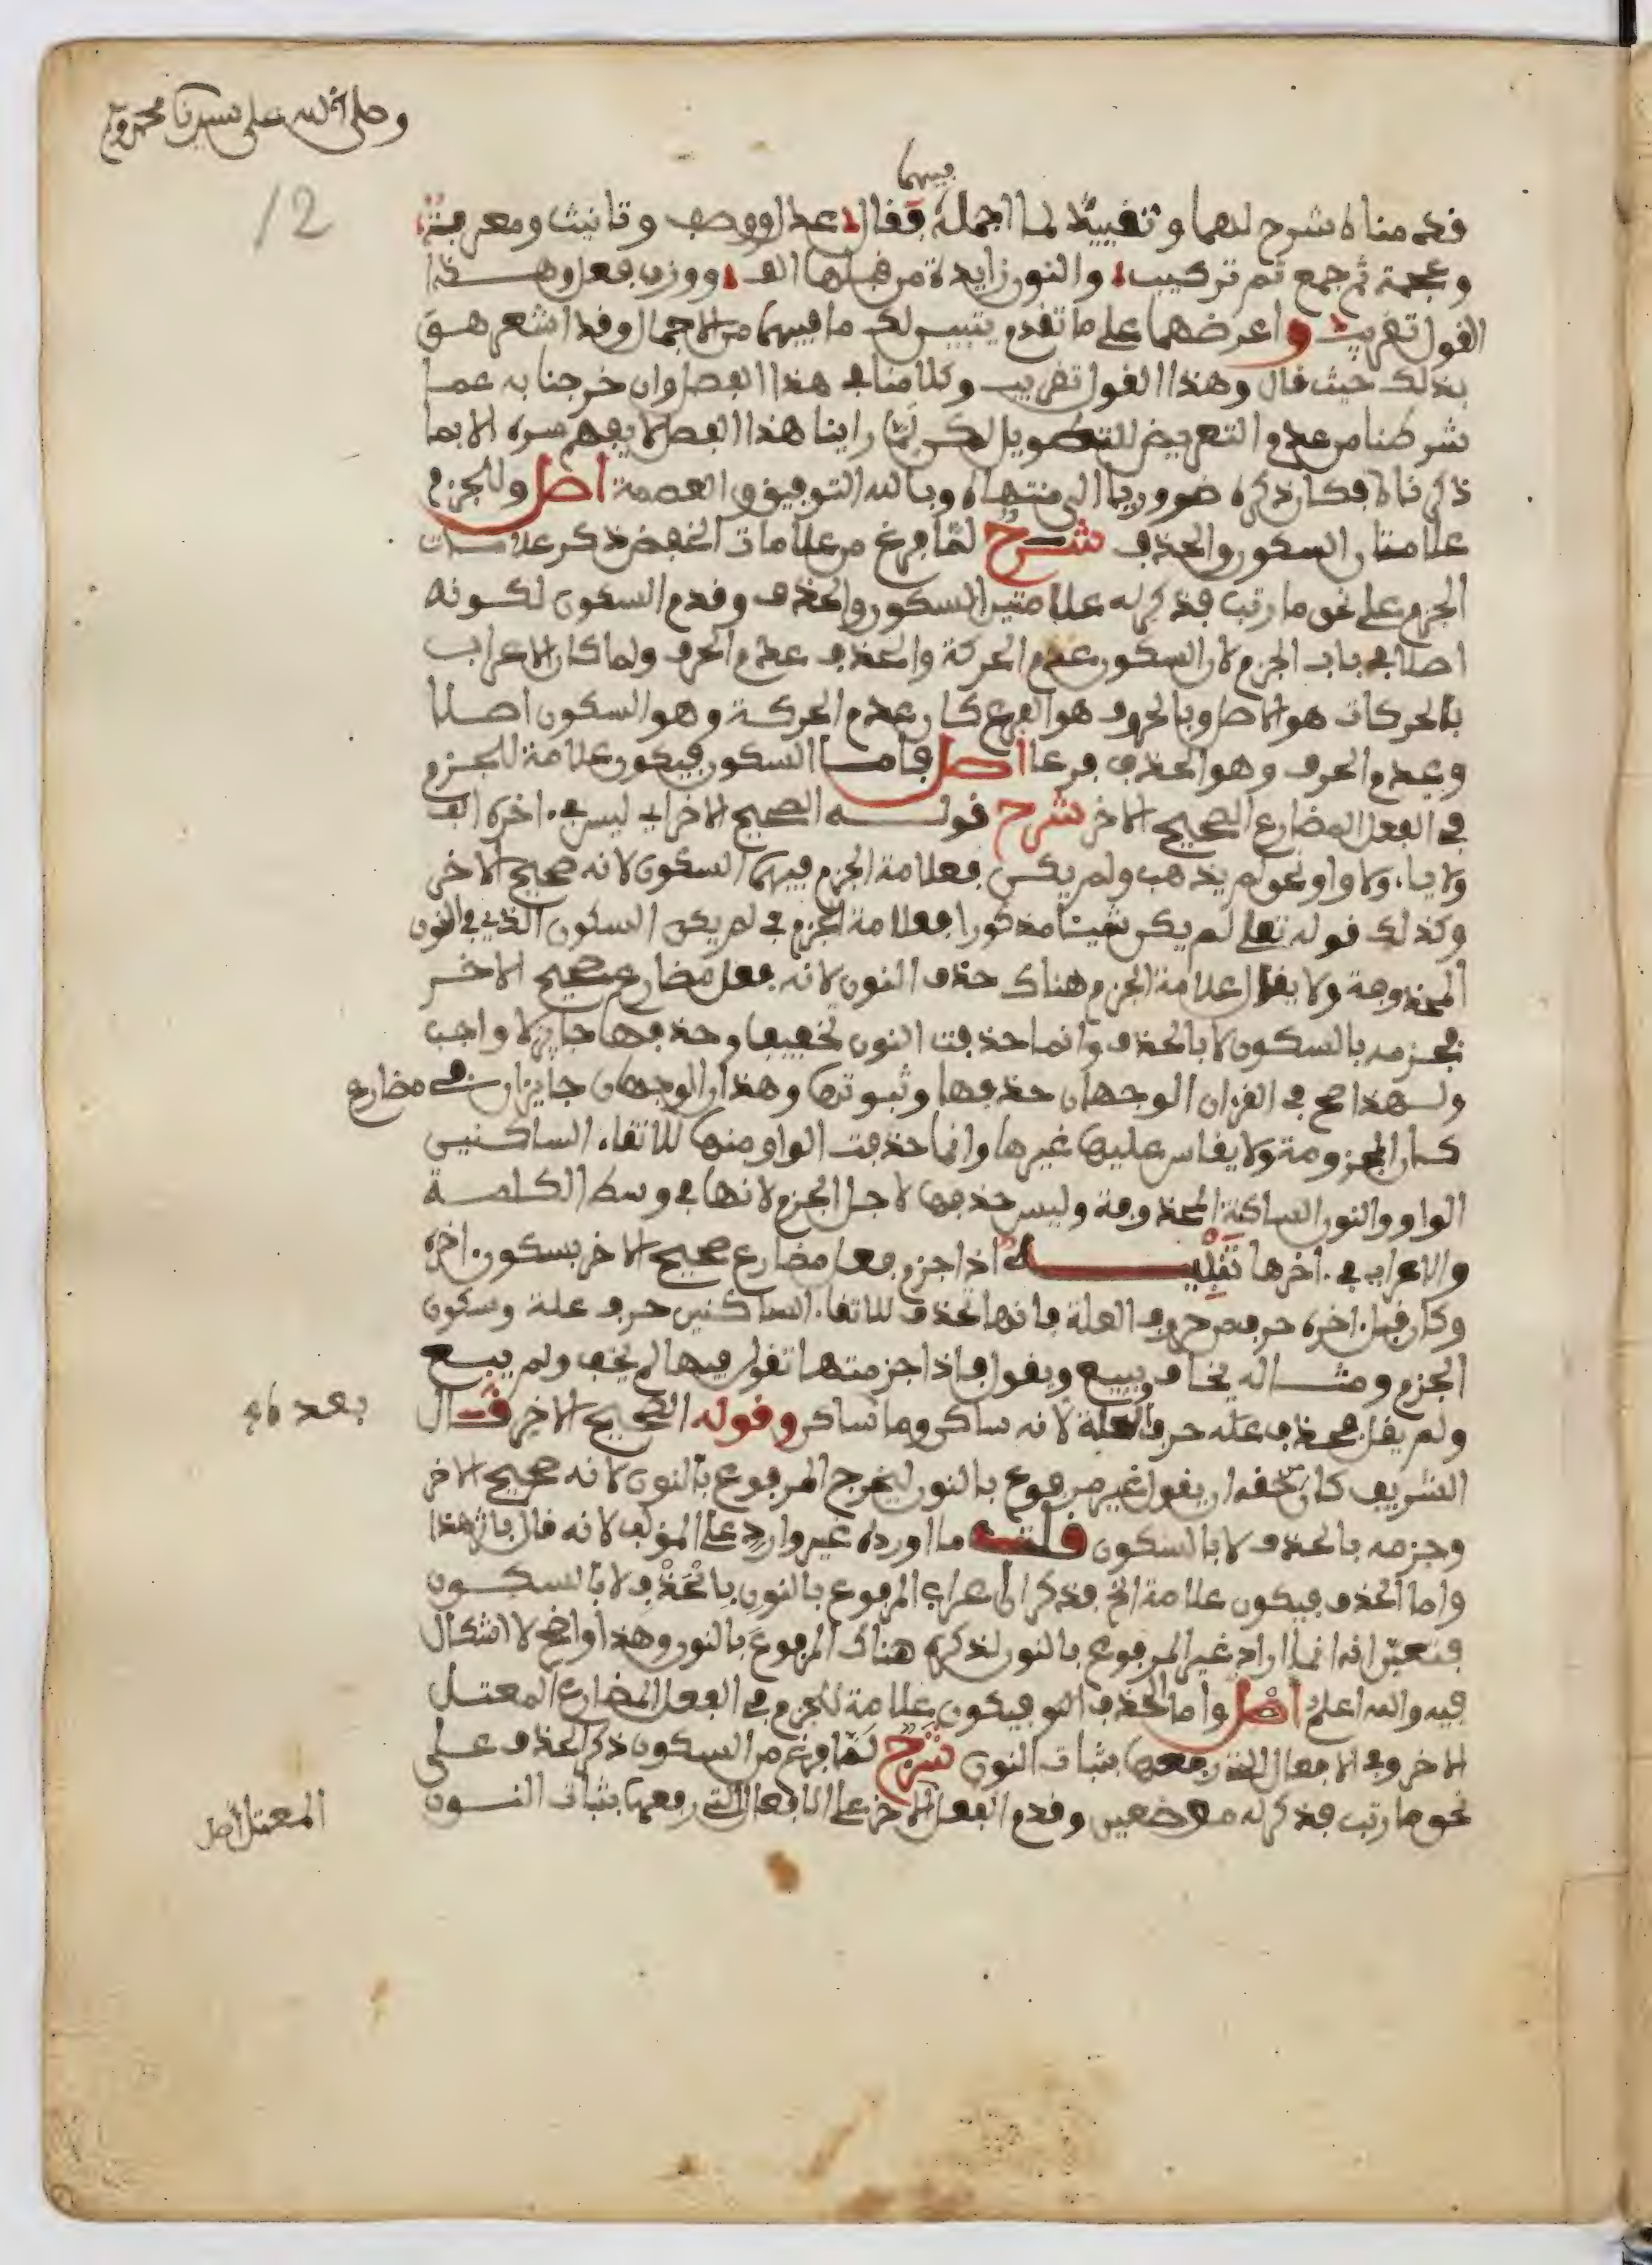 وصلى الله على سيدنا محمد وآله
12
فيهما
قدمناه شرح لهما وتفييد لما اجمله فقال عدل ووصف وتانيث ومعرفة
وعجمة ثم جمع ثم تركيب والنون زايدة من قبلها الف ووزن فعل وهذا
القول تقريب واعرضهما على ما تقدم يتبين لك ما فيهما من الاجمال وقد اشعر هو
بذلك حيث قال وهذا القول تقريب وكلامنا في هذا الفصل وان خرجنا به عما
شرطنا من عدم التعريض للتطويل لكن لما راينا هذا الفصل لا يفهم سره الا بما
ذكرناه فكان ذكره ضروريا الى منتهاه وبالله التوفيق والعصمة اصل وللجزم
علامتان السكون والحذف شرح لما فرغ من علامات الخفض ذكر علامات
الجزم على نحو ما رتب فذكر له علامتين السكون والحذف وقدم السكون لكونه
اصلا في باب الجزم لان السكون عدم الحركة والحذف عدم الحرف ولما كان الاعراب
بالحركات هو الاصل وبالحروف هو الفرع كان عدم الحركة وهو السكون اصلا
وعدم الحرف وهو الحذف فرعا اصل فاما السكون فيكون علامة للجزم
في الفعل المضارع الصحيح الاخر شرح قوله الصحيح الاخر اي ليس في اخره الف
ولا ياء ولا واو نحو لم يذهب ولم يكن فعلامة الجزم فيهما السكون لانه صحيح الاخر
وكذلك قوله تعلى لم يكن شيئا مذكورا فعلامة الجزم في لم يكن السكون الذي في النون
المحذوفة ولا يقال علامة الجزم هناك حذف النون لانه فعل مضارع صحيح الاخر
فجزمه بالسكون لا بالحذف وانما حذفت النون تخفيفا وحذفها جايز لا واجب
ولهذا صح في القرءان الوجهان حذفها وثبوتها وهذان الوجهان جايزان في مضارع
كان المجزومة ولا يقاس عليها غيرها وانما حذفت الواو منها لالتقاء الساكنين
الواو والنون الساكنة المحذوفة وليس حذفها لاجل الجزم لانها في وسط الكلمة
والاعراب في اخرها تنبيه اذا جزم فعل مضارع صحيح الاخر بسكون اخره
وكان قبل اخره حرف من حروف العلة فانها تحذف لالتقاء الساكنين حرف علة وسكون
الجزم ومثاله يخاف ويبيع ويقول فاذا جزمتها تقول فيها لم يخف ولم يبع
ولم يقل فحذف علة حرف العلة لانه ساكن وما ساكن وقوله الصحيح الاخر قال
بعده
الشريف كان حقه ان يقول غير مرفوع بالنون ليخرج المرفوع بالنون لانه صحيح الاخر
وجزمه بالحذف لا بالسكون قلت ما اورده غير وارد على المؤلف لانه قال باثر هذا
واما الحذف فيكون علامة الخ فذكر ان اعراب المرفوع بالنون بالحذف لا بالسكون
فتعين انه انما اراد غير المرفوع بالنون لذكره هناك المرفوع بالنون وهذا واضح لا اشكال
فيه والله اعلم اصل واما الحذف فيكون علامة للجزم في الفعل المضارع المعتل
الاخر وفي الافعال التي رفعها بثبات النون شرح لما فرغ من السكون ذكر الحذف على
نحو ما رتب فذكر له موضعين وقدم الفعل الاخر على الافعال التي رفعها بثبات النون
المعتل اصل